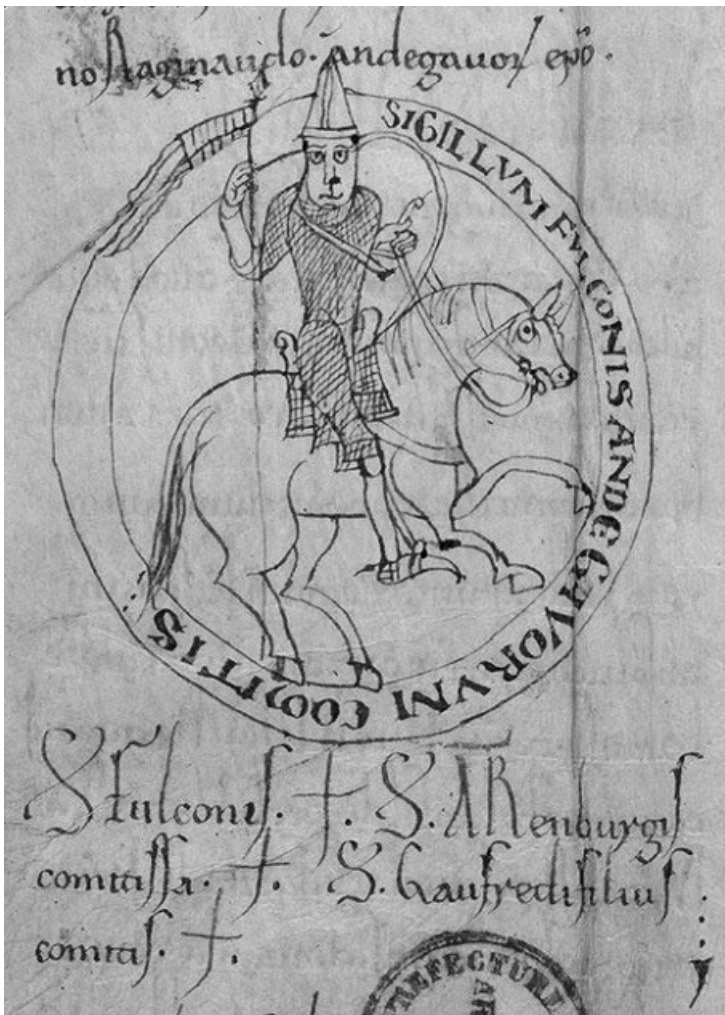 no Raginaudo. andegavor epo.
SIGILLVM FVLCONIS ANDEGAVORVM COMITIS
S Fulconis. †. S. ARenburgis
comitissa. †. S. Gaufredi filius
comitis. †.
PREFECTURE
AR